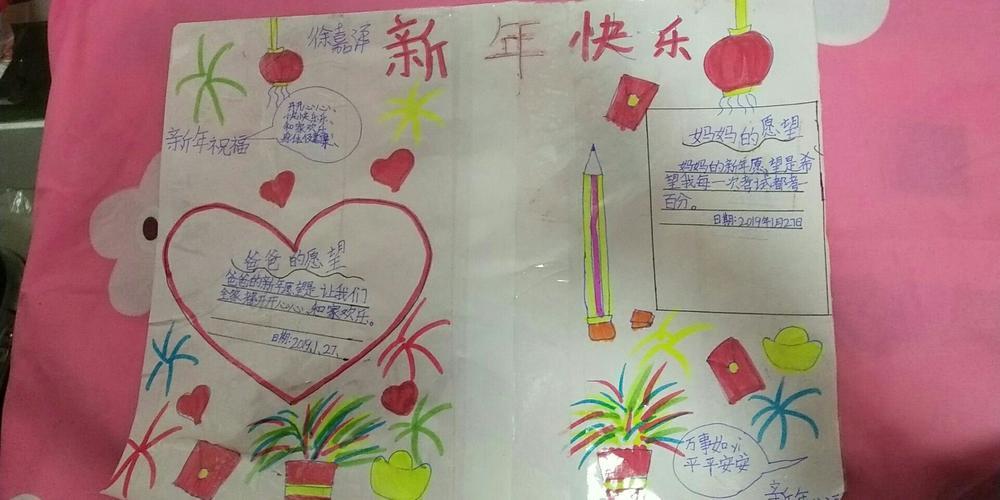 徐嘉涌
新年快乐
新年祝福
开开心心、
快快乐乐、
和家欢乐、
爸爸的愿望
爸爸的新年愿望是让我们
全家都开开心心、和家欢乐。
日期:2019.1.27、
妈妈的愿望
妈妈的新年愿望是希
望我每一次考试都考
百分。
日期:2019年1月27日
万事如yi
平平安安
新年